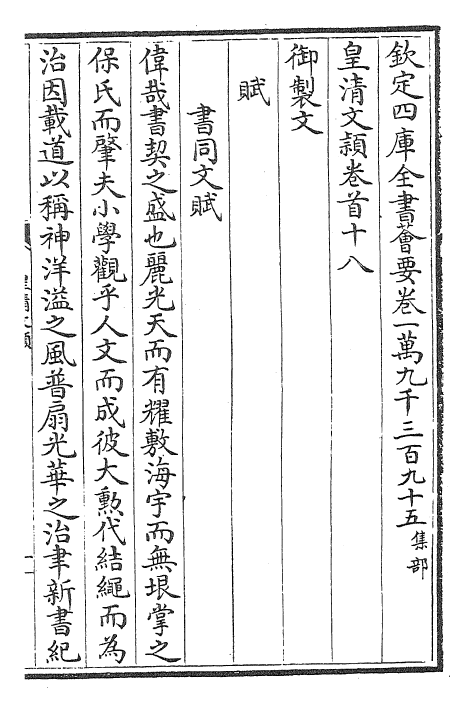 欽定四庫全書薈要卷一萬九千三百九十五集部
皇清文穎卷首十八
御製文
賦
書同文賦
偉哉書契之盛也麗光天而有耀敷海宇而無垠掌之
保氏而肇夫小學觀乎人文而成彼大勲代結繩而為
治因載道以稱神洋溢之風普扇光華之治聿新書紀